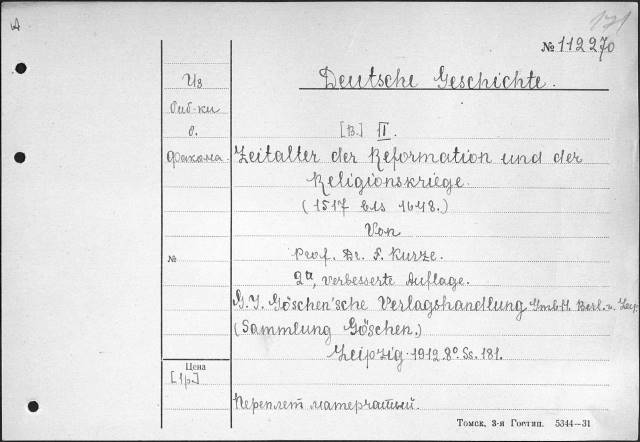 A
171
№ 112270
Из
биб-ки
о.
фрахома.
№
Цена
[1р.]
Deutsche Geschichte.
[B.] II.
Zeitalter der Reformation und der
Religionskriege.
(1517 bis 1648.)
Von
Prof. Dr. F. Kurze.
2te, verbesserte Auflage.
G. J. Göschen'sche Verlagshandlung GmbH. Berl. u. Leip.
(Sammlung Göschen.)
Leipzig. 1912. 8º. Ss. 181.
Переплет матерчатый.
Томск, 3-я Гостип. 5344—31